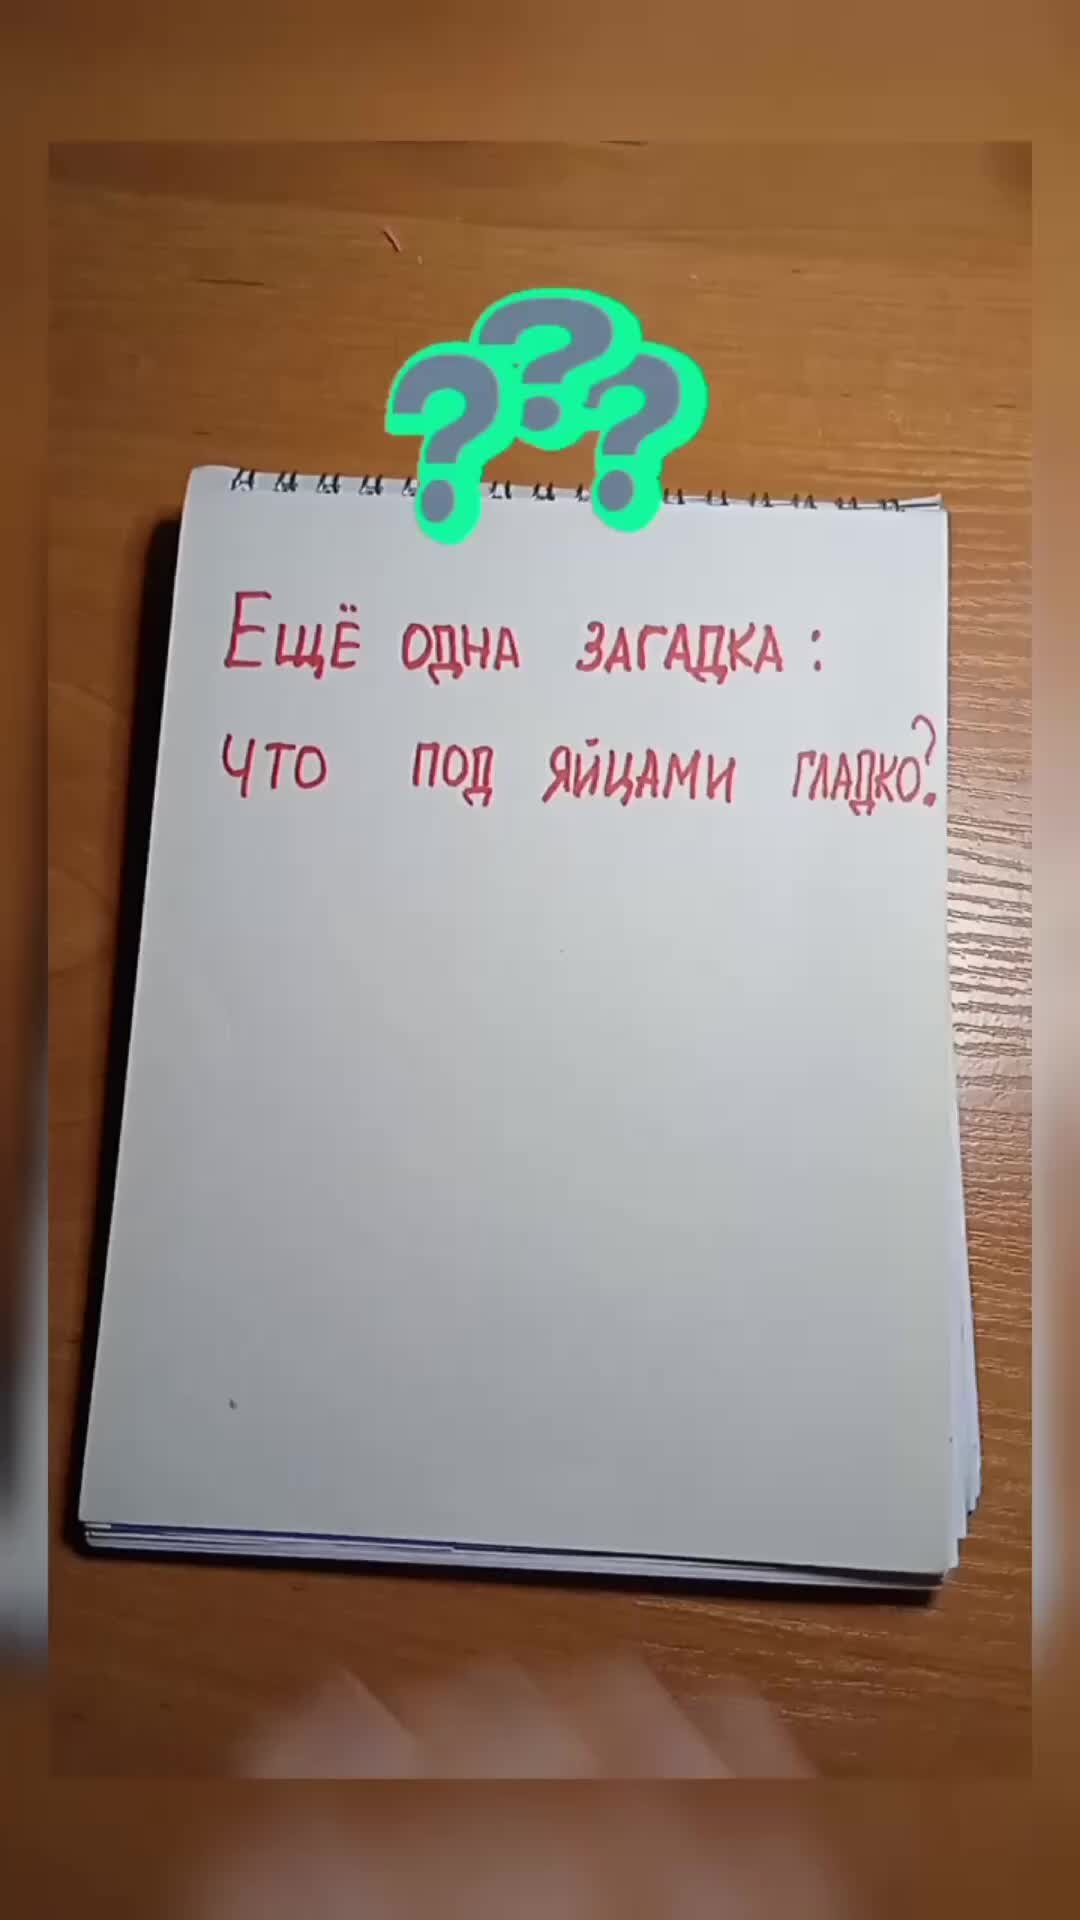 ???
Ещё одна загадка:
что под яйцами гладко?